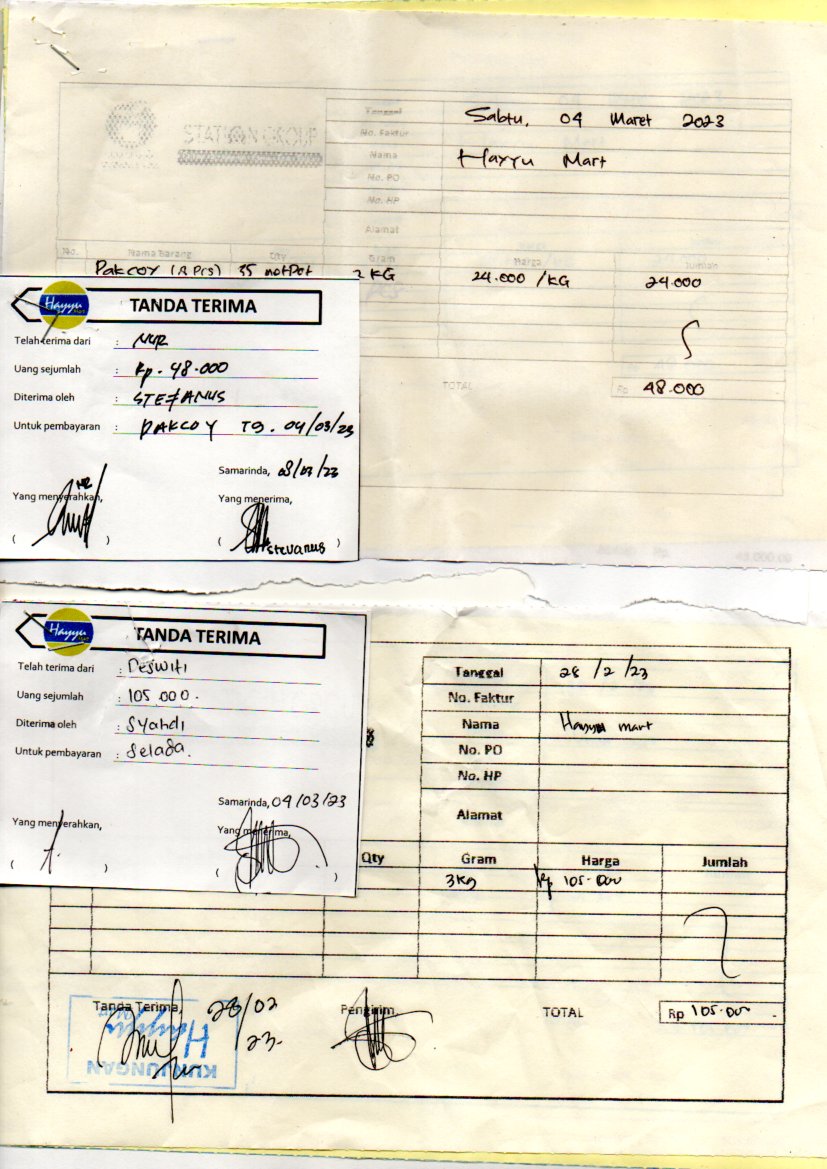 STATION GROUP
Tanggal Sabtu, 04 Maret 2023
No. Faktur
Nama Hayyu Mart
No. PO
No. HP
Alamat
No. Nama Barang Qty Gram Harga Jumlah
Pakcoy (8 Pcs) 35 netPot 2 KG 24.000 /KG 24.000
TOTAL Rp 48.000
Hayyu Mart
TANDA TERIMA
Telah terima dari : NUR
Uang sejumlah : Rp. 48.000
Diterima oleh : STEFANUS
Untuk pembayaran : PAKCOY TG. 04/03/23
Samarinda, 08/03/23
Yang menyerahkan, Yang menerima,
( ) ( stevanus )
Hayyu Mart
TANDA TERIMA
Telah terima dari : Peswiti
Uang sejumlah : 105.000.
Diterima oleh : Syahdi
Untuk pembayaran : Selada.
Samarinda, 04/03/23
Yang menyerahkan, Yang menerima,
( ) ( )
Tanggal 28/2/23
No. Faktur
Nama Hayyu mart
No. PO
No. HP
Alamat
Qty Gram Harga Jumlah
3kg Rp 105.000
Tanda Terima, 28/02/23. Pengirim, TOTAL Rp 105.000
KUNJUNGAN